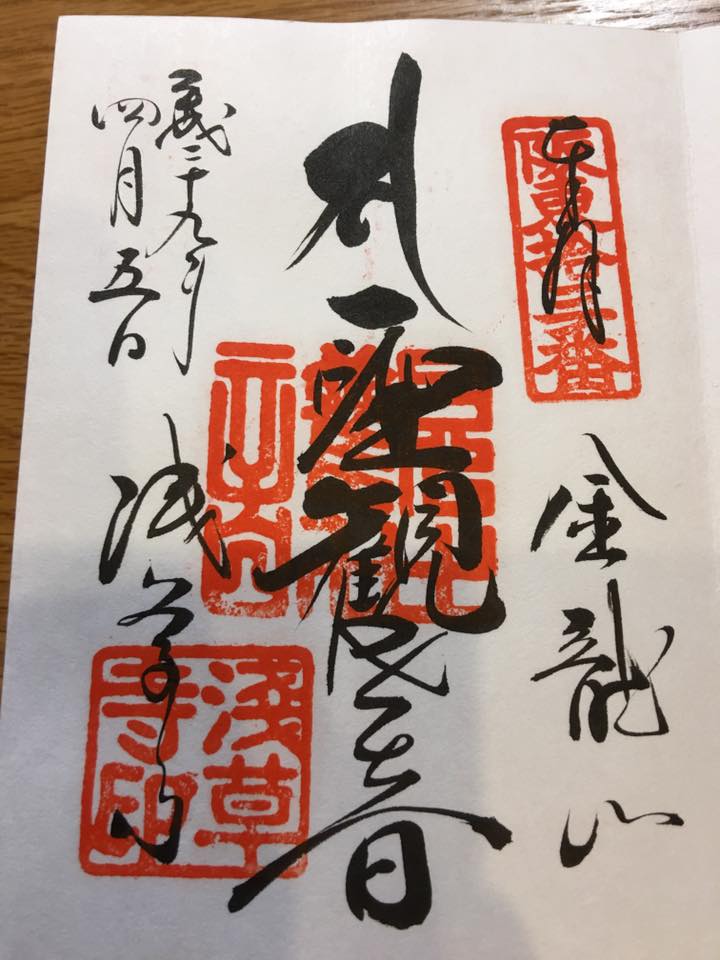 奉拝
阪東拾三番
金龍山
聖観世音
平成二十九年
四月五日
浅草寺
淺草寺印